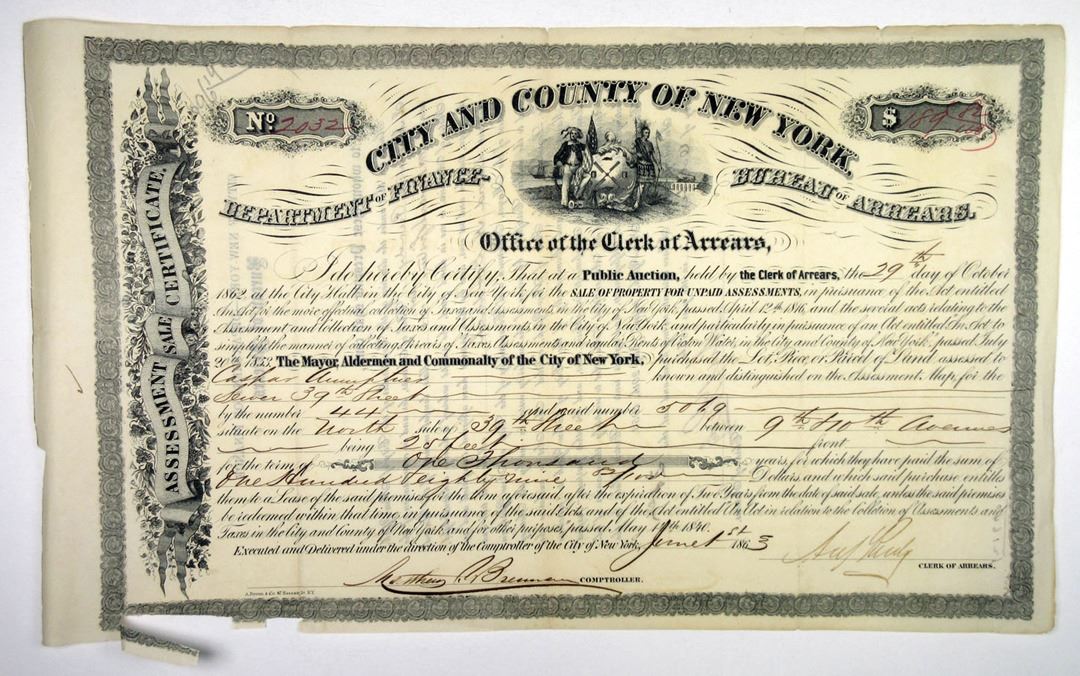 No. 2032
$ 189 02/100
CITY AND COUNTY OF NEW YORK,
DEPARTMENT OF FINANCE- BUREAU OF ARREARS.
Office of the Clerk of Arrears,
ASSESSMENT SALE CERTIFICATE.
I do hereby Certify, That at a Public Auction, held by the Clerk of Arrears, the 29th day of October
1862, at the City Hall, in the City of New York, for the SALE OF PROPERTY FOR UNPAID ASSESSMENTS, in pursuance of the Act entitled
An Act for the more effectual collection of Taxes and Assessments, in the City of New York, passed April 12th 1816, and the several acts relating to the
Assessment and Collection of Taxes and Assessments in the City of New York and particularly in pursuance of an Act entitled An Act to
simplify the manner of collecting Arrears of Taxes, Assessments and regular Rents of Croton Water, in the City and County of New York, passed July
20th 1853. The Mayor, Aldermen and Commonalty of the City of New York, purchased the Lot, Piece, or Parcel of Land assessed to
Caspar known and distinguished on the Assessment Map, for the
Sewer 39th Street
by the number 44 and ward number 5069
situate on the North side of 39th Street between 9th & 10th Avenues
being 25 feet front
for the term of One Thousand years, for which they have paid the sum of
One Hundred Eighty nine 02/100 Dollars and which said purchase entitles
them to a Lease of the said premises for the term aforesaid after the expiration of Two Years from the date of said sale, unless the said premises
be redeemed within that time, in pursuance of the said Acts and of the Act entitled An Act in relation to the Collection of Assessments and
Taxes in the City and County of New York and for other purposes, passed May 14th 1840.
Executed and Delivered under the direction of the Comptroller of the City of New York, June 1st 1863
CLERK OF ARREARS.
Matthew T. Brennan COMPTROLLER.